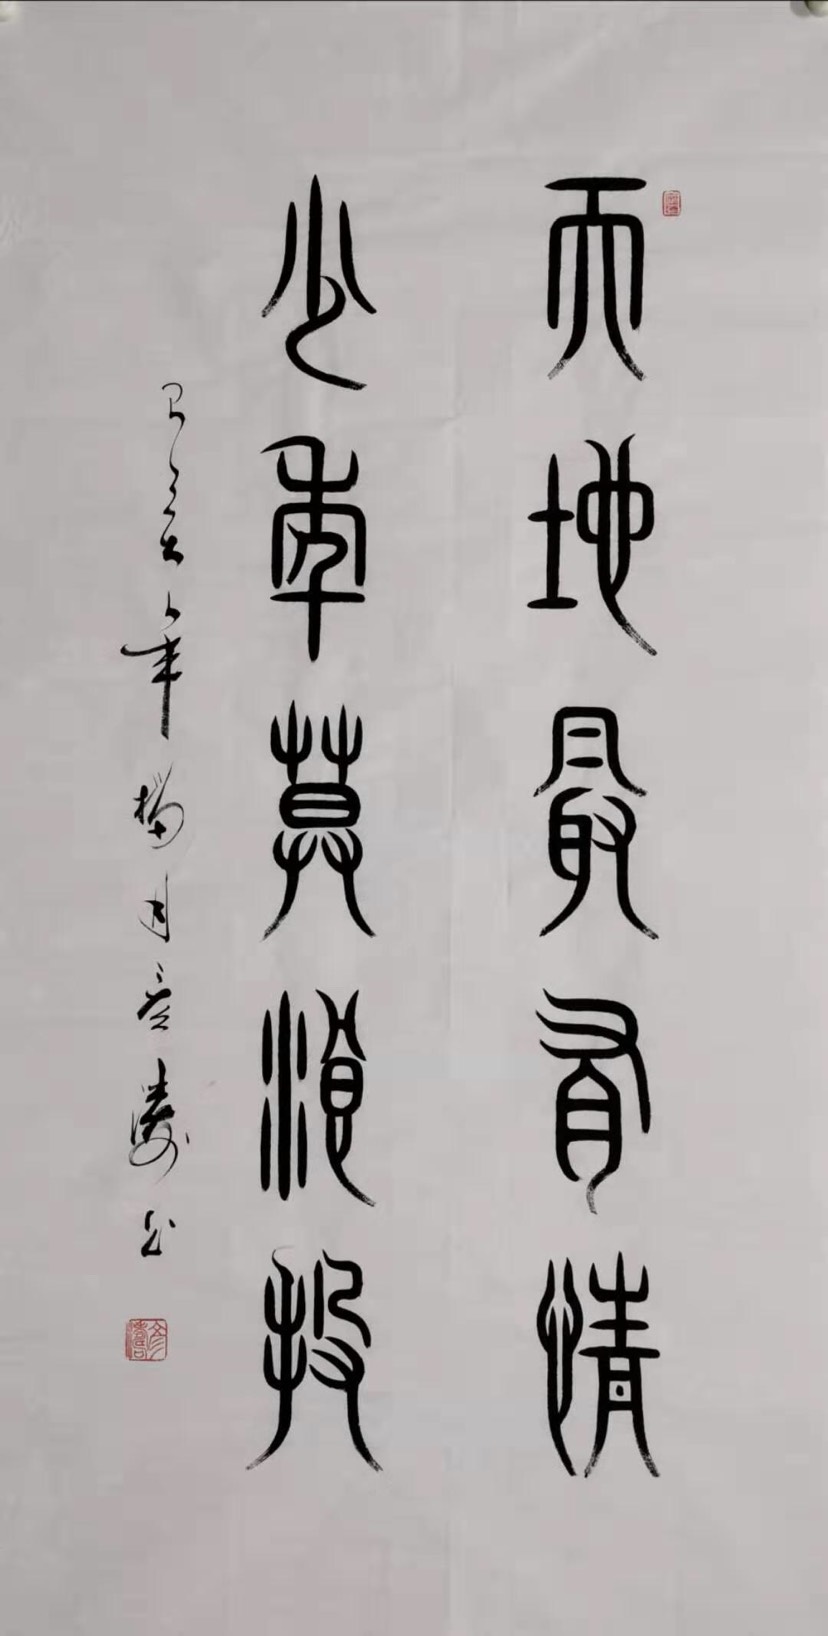 天地最有情
少年莫浪投
年 月